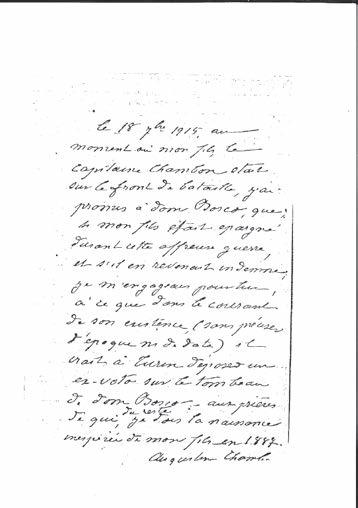 le 18 7bre 1915, au
moment où mon fils, le
capitaine Chambon était
sur le front de bataille, j'ai
promis à dom Bosco, que
si mon fils était épargné
durant cette affreuse guerre,
et s'il en revenait indemne,
je m'engageais pour lui,
à ce que dans le courant
de son existence (sans préciser
d'époque ni de date) il
irait à Turin déposer un
ex-voto sur le tombeau
de dom Bosco - aux prières
de qui, du reste je dois la naissance
inespérée de mon fils en 1887.